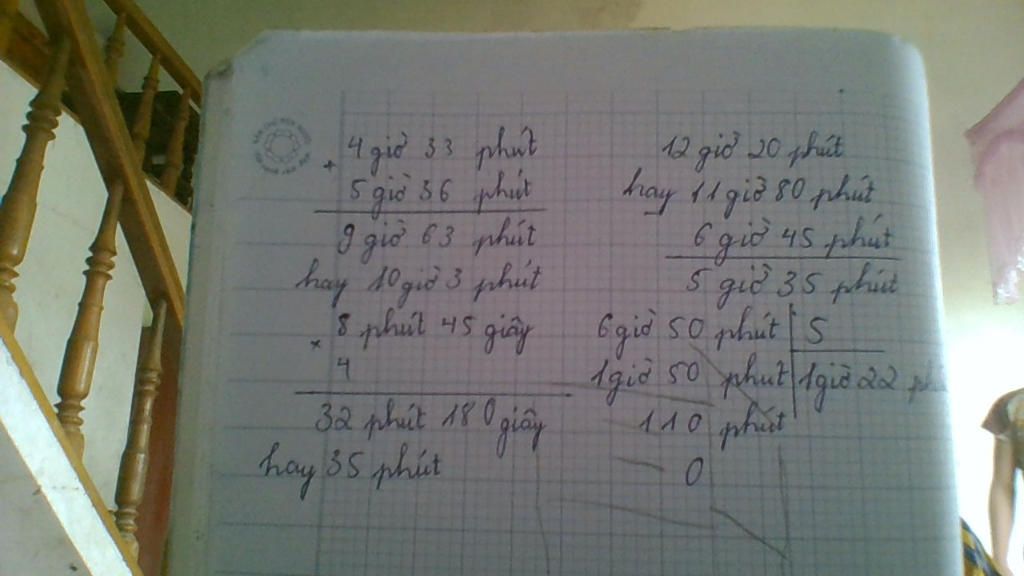 + 4 giờ 33 phút
5 giờ 36 phút
9 giờ 63 phút
hay 10 giờ 3 phút
× 8 phút 45 giây
4
32 phút 180 giây
hay 35 phút
12 giờ 20 phút
hay 11 giờ 80 phút
- 6 giờ 45 phút
5 giờ 35 phút
6 giờ 50 phút | 5
1 giờ 50 phút | 1 giờ 22
110 phút
0